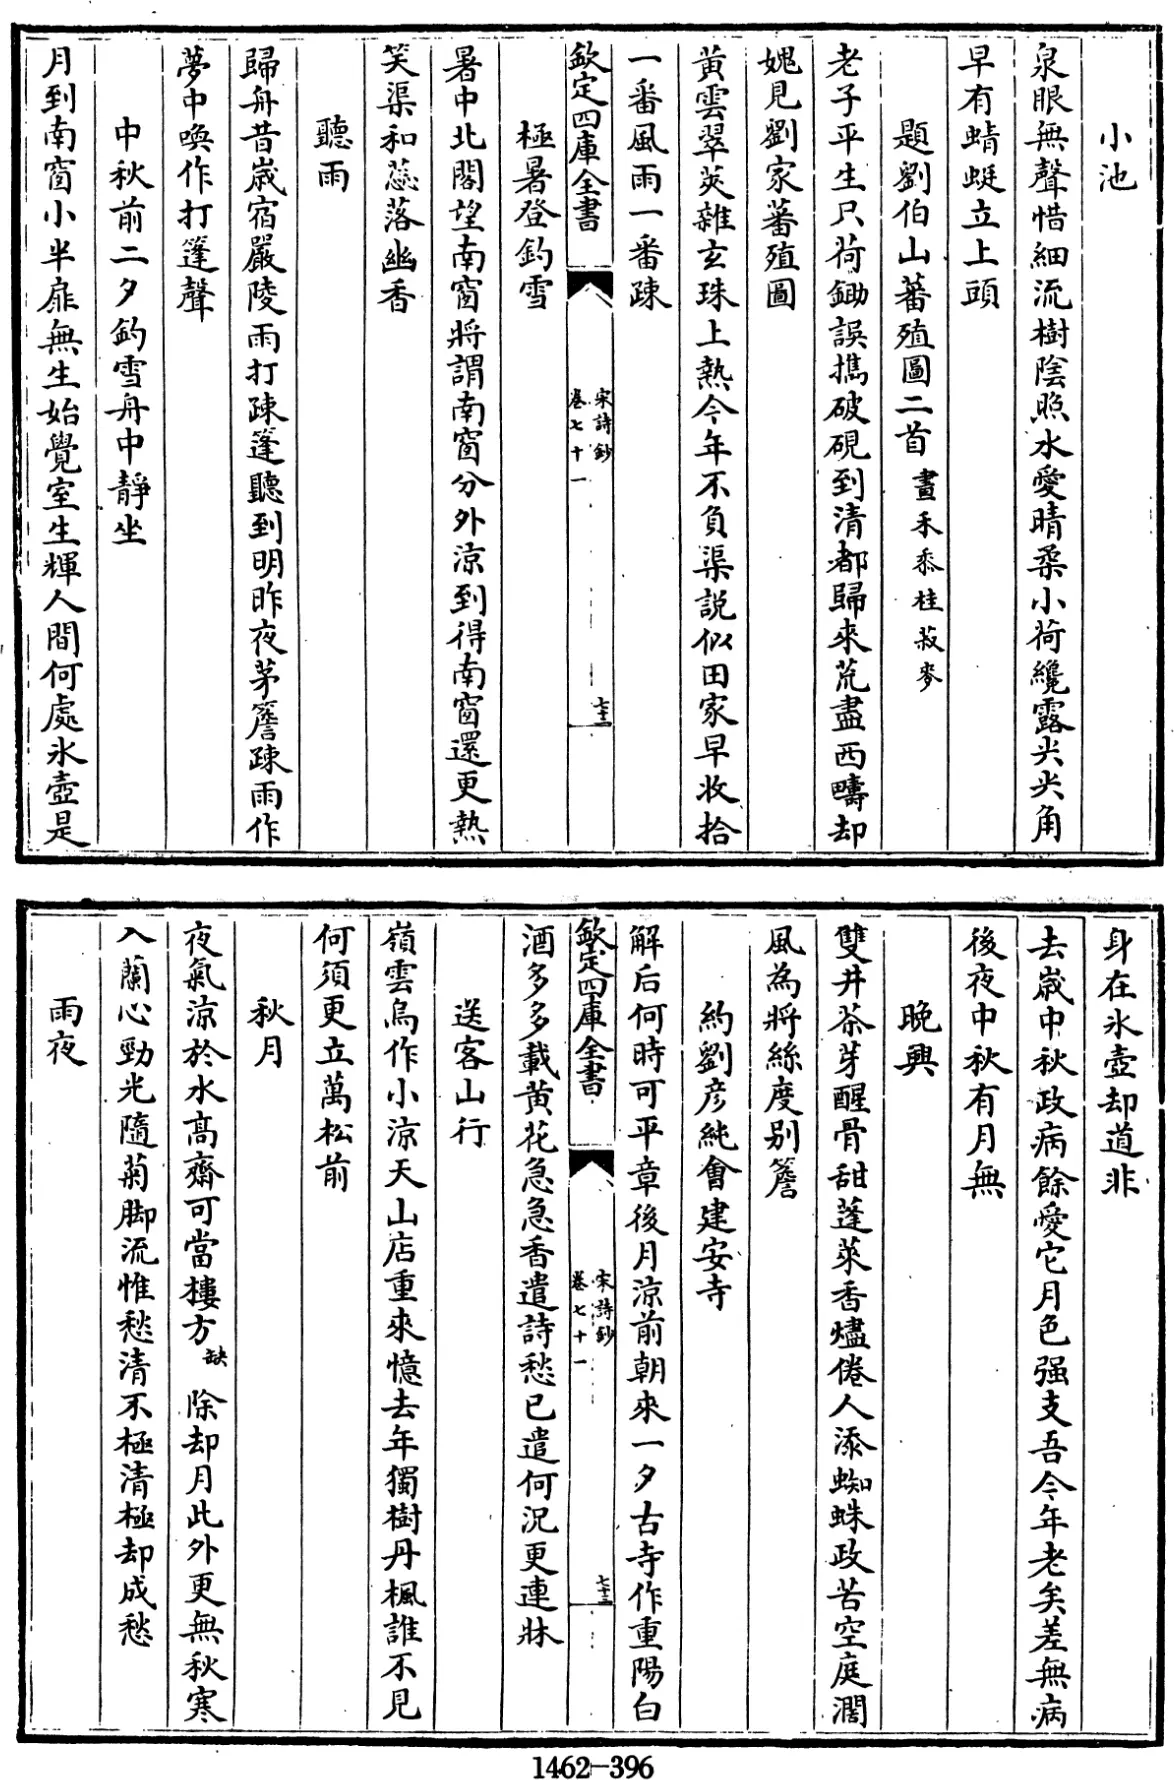 小池
泉眼無聲惜細流樹陰照水愛晴柔小荷纔露尖尖角
早有蜻蜓立上頭
題劉伯山蕃殖圖二首 畫禾黍桂菽麥
老子平生只荷鋤誤攜破硯到清都歸來荒盡西疇却
媿見劉家蕃殖圖
黃雲翠莢雜玄珠上熱今年不負渠説似田家早收拾
一番風雨一番疎
欽定四庫全書
宋詩鈔
卷七十一
極暑登釣雪
暑中北閣望南窗將謂南窗分外涼到得南窗還更熱
笑渠和蕊落幽香
聽雨
歸舟昔歲宿嚴陵雨打疎篷聽到明昨夜茅簷疎雨作
夢中喚作打篷聲
中秋前二夕釣雪舟中靜坐
月到南窗小半扉無生始覺室生輝人間何處氷壺是
身在氷壺却道非
去歲中秋政病餘愛它月色强支吾今年老矣差無病
後夜中秋有月無
晚興
雙井茶芽醒骨甜蓬萊香燼倦人添蜘蛛政苦空庭濶
風為將絲度别簷
約劉彦純會建安寺
解后何時可平章後月涼前朝來一夕古寺作重陽白
欽定四庫全書
宋詩鈔
卷七十一
酒多多載黄花急急香遣詩愁已遣何況更連牀
送客山行
嶺雲烏作小涼天山店重來憶去年獨樹丹楓誰不見
何須更立萬松前
秋月
夜氣涼於水高齋可當樓方缺除却月此外更無秋寒
入蘭心勁光隨菊脚流惟愁清不極清極却成愁
雨夜
1462-396